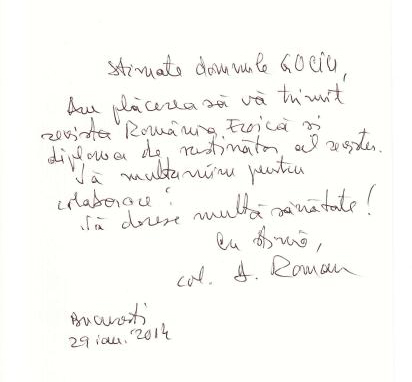 Stimate domnule GOCIU,
Am plăcerea să vă trimit
revista România Eroică și
diploma de susținător al revistei.
Vă mulțumim pentru
colaborare!
Vă doresc multă sănătate!
Cu stimă,
col. A. Roman
București
29 ian. 2014